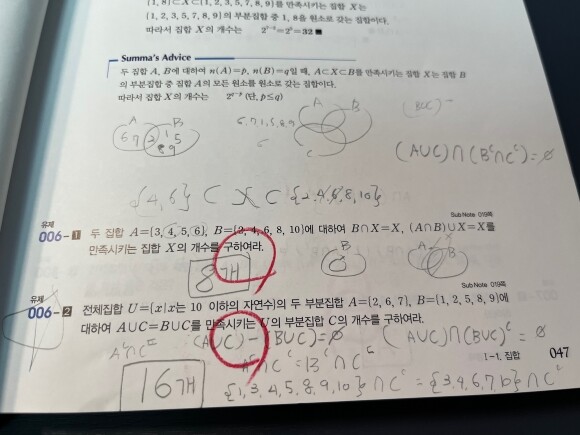 {1, 8}⊂X⊂{1, 2, 3, 5, 7, 8, 9}를 만족시키는 집합 X는
{1, 2, 3, 5, 7, 8, 9}의 부분집합 중 1, 8을 원소로 갖는 집합이다.
따라서 집합 X의 개수는 2⁷⁻²=2⁵=32 ■
Summa's Advice
두 집합 A, B에 대하여 n(A)=p, n(B)=q일 때, A⊂X⊂B를 만족시키는 집합 X는 집합 B
의 부분집합 중 집합 A의 모든 원소를 원소로 갖는 집합이다.
따라서 집합 X의 개수는 2^(q-p) (단, p≤q)
A B
6 7 2 1 5
8 9
6,7,1,5,8,9
A B
C
(BUC) -
(AUC)∩(Bᶜ∩Cᶜ)=∅
{4,6} ⊂ X ⊂ {2,4,6,8,10}
유제
006-1 두 집합 A={3, 4, 5, 6}, B={2, 4, 6, 8, 10}에 대하여 B∩X=X, (A∩B)∪X=X를
Sub Note 019쪽
만족시키는 집합 X의 개수를 구하여라.
8개
B
A B
Sub Note 019쪽
유제
006-2 전체집합 U={x|x는 10 이하의 자연수}의 두 부분집합 A={2, 6, 7}, B={1, 2, 5, 8, 9}에
대하여 A∪C=B∪C를 만족시키는 U의 부분집합 C의 개수를 구하여라.
(AUC)-(BUC)=∅ (AUC)∩(BUC)ᶜ=∅
Aᶜ∩Cᶜ
Aᶜ∩Cᶜ=Bᶜ∩Cᶜ
I-1. 집합 047
16개
{1,3,4,5,8,9,10}∩Cᶜ={3,4,6,7,10}∩Cᶜ